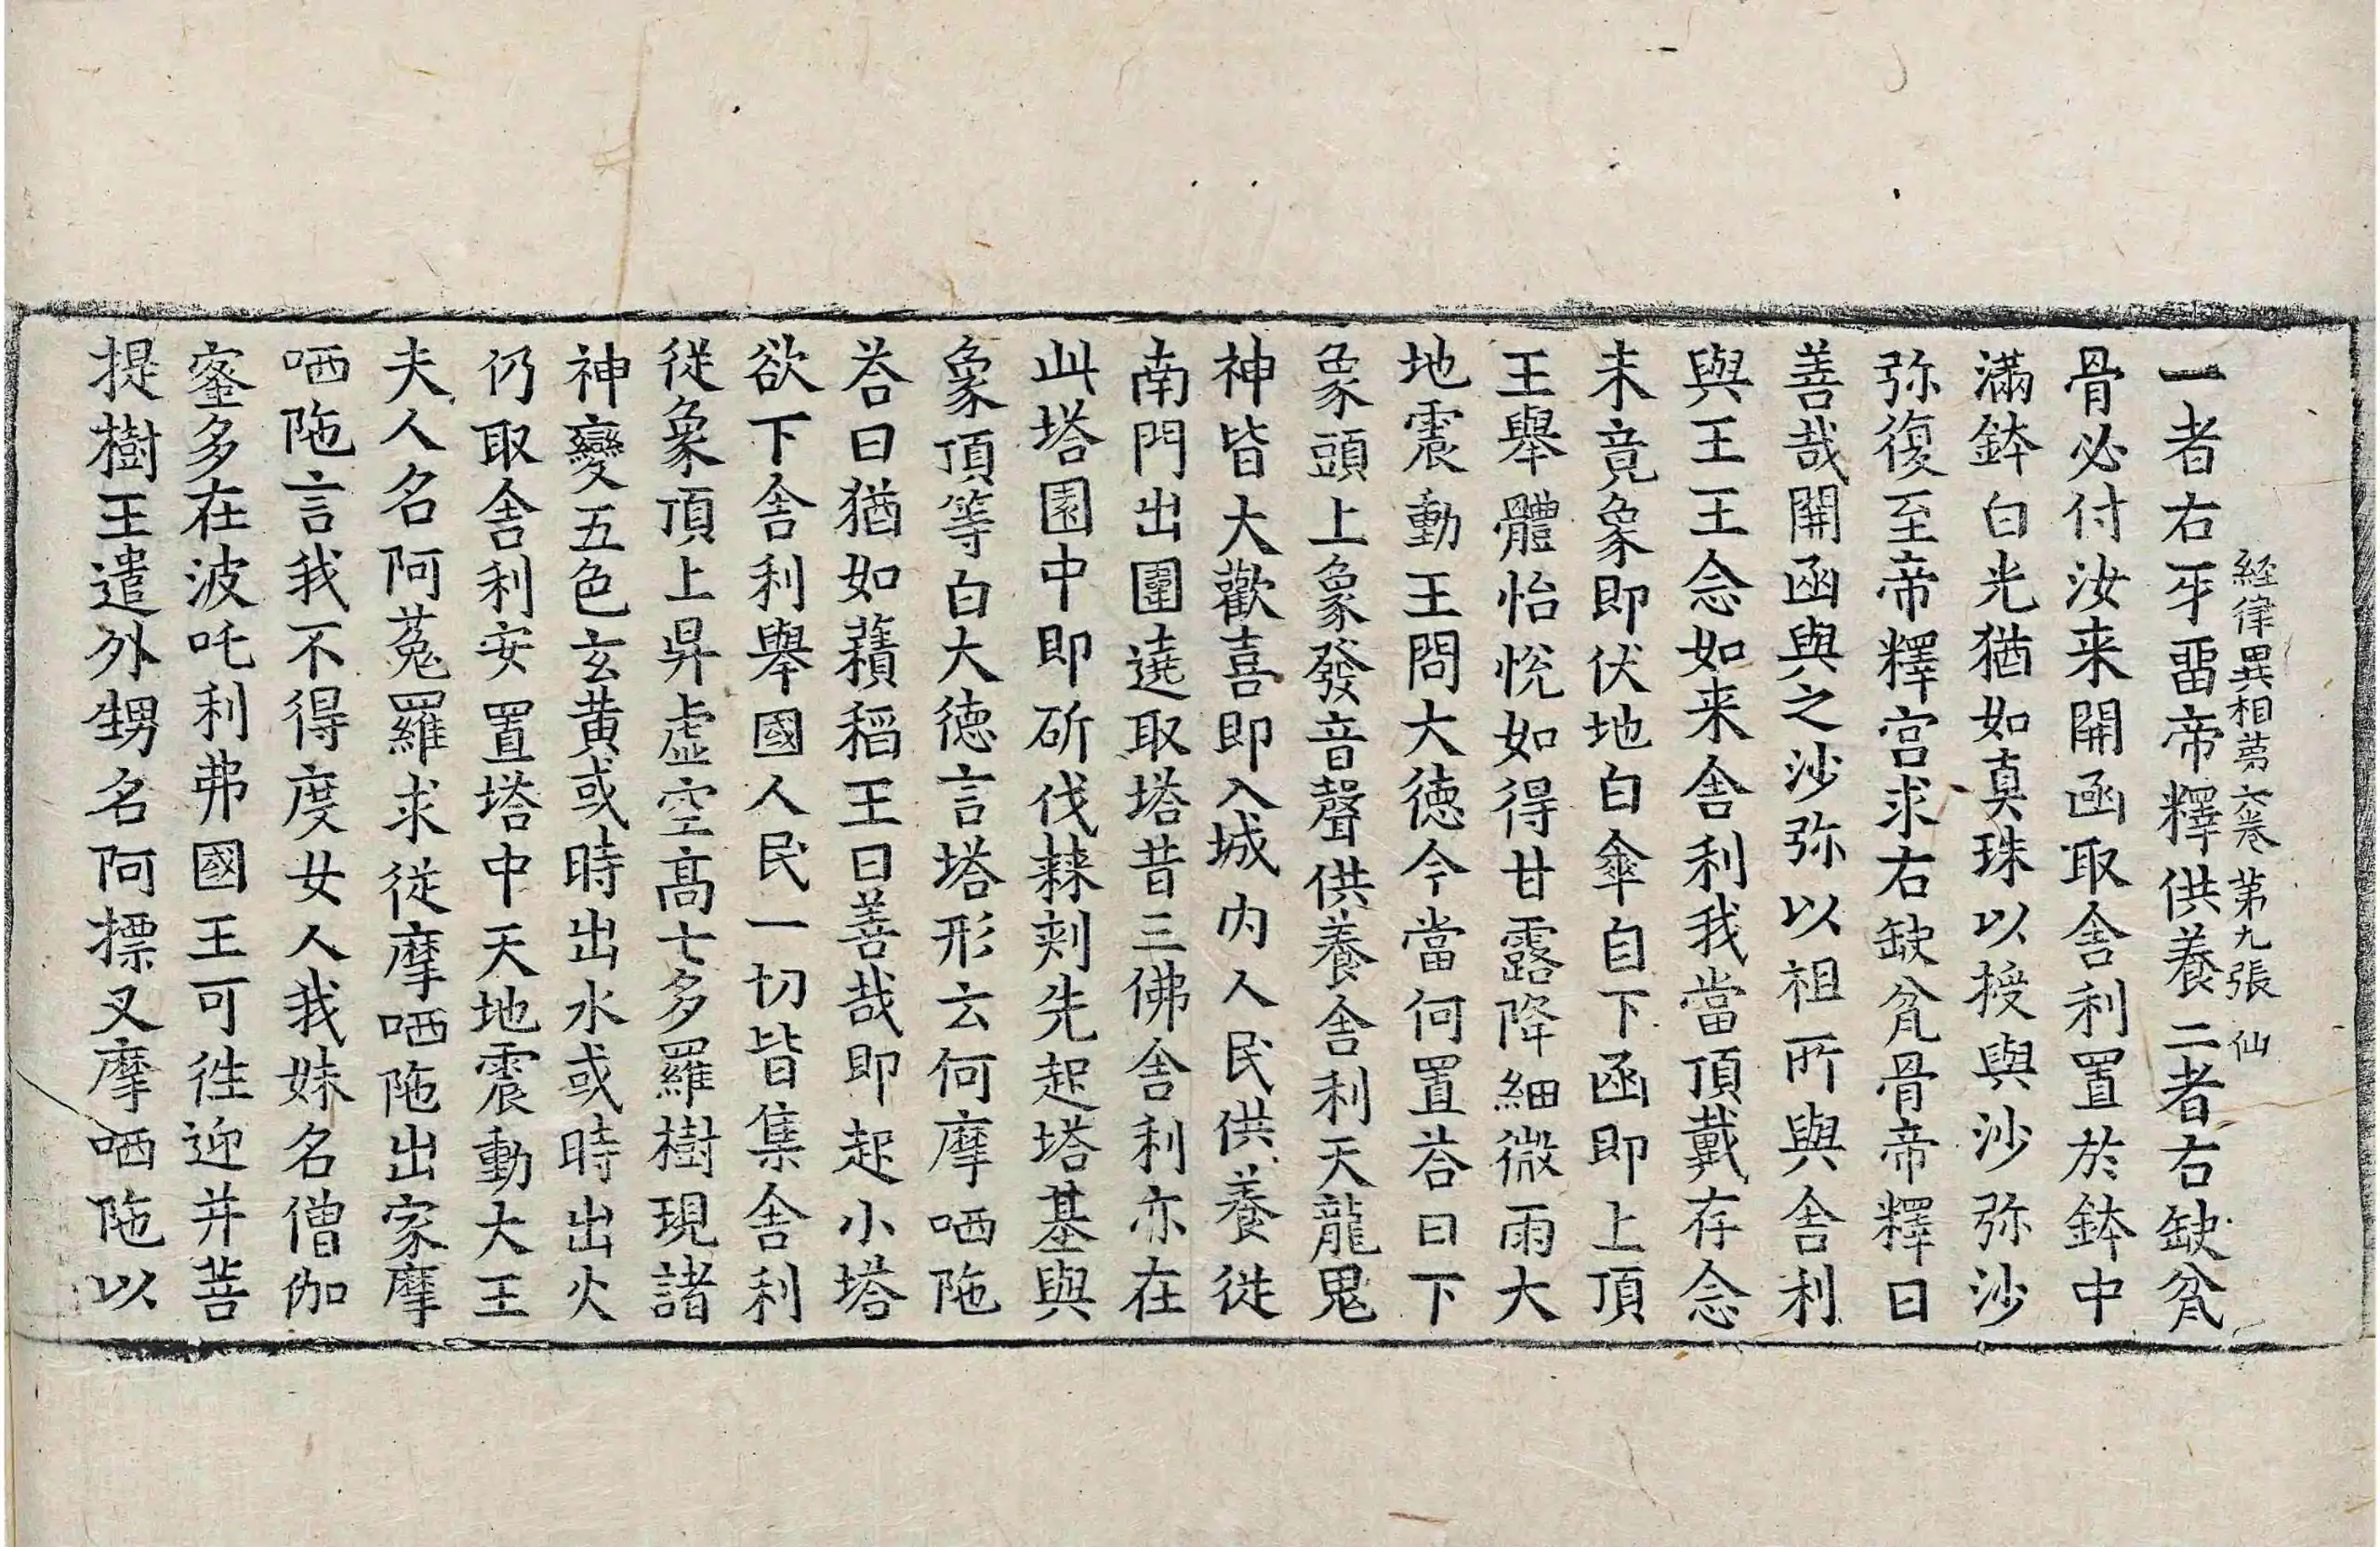 經律異相第六卷 第九張 仙
一者右牙畱帝釋供養二者右缺盆
骨必付汝来開函取舍利置於鉢中
滿鉢白光猶如真珠以授與沙弥沙
弥復至帝釋宮求右缺盆骨帝釋曰
善哉開函與之沙弥以祖所與舍利
與王王念如来舍利我當頂戴存念
未竟象即伏地白傘自下函即上頂
王舉體怡悅如得甘露降細微雨大
地震動王問大德今當何置荅曰下
象頭上象發音聲供養舍利天龍鬼
神皆大歡喜即入城內人民供養從
南門出圍遶取塔昔三佛舍利亦在
此塔園中即斫伐棘刾先起塔基與
象頂等白大德言塔形云何摩哂陁
荅曰猶如𧂐稻王曰善哉即起小塔
欲下舍利舉國人民一切皆集舍利
從象頂上昇虛空高七多羅樹現諸
神變五色玄黃或時出水或時出火
仍取舍利安置塔中天地震動大王
夫人名阿菟羅求從摩哂陁出家摩
哂陁言我不得度女人我妹名僧伽
蜜多在波吒利弗國王可徃迎并菩
提樹王遣外甥名阿摽叉摩哂陁以